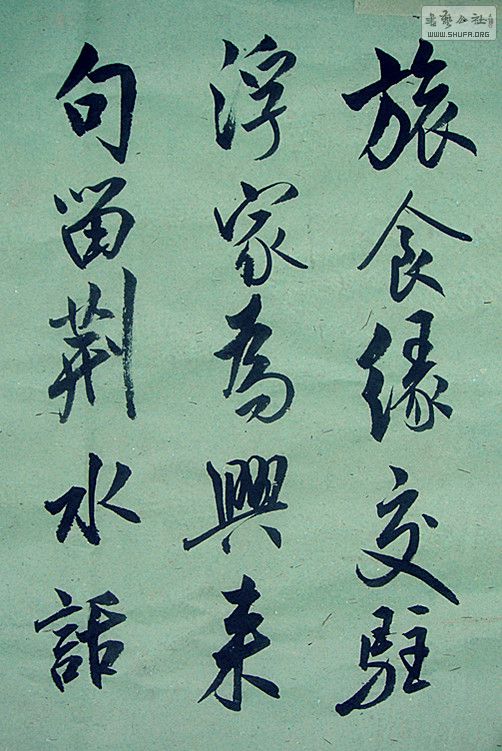 旅食緣交駐
浮家為興来
句留荆水話
書藝公社
WWW.SHUFA.ORG